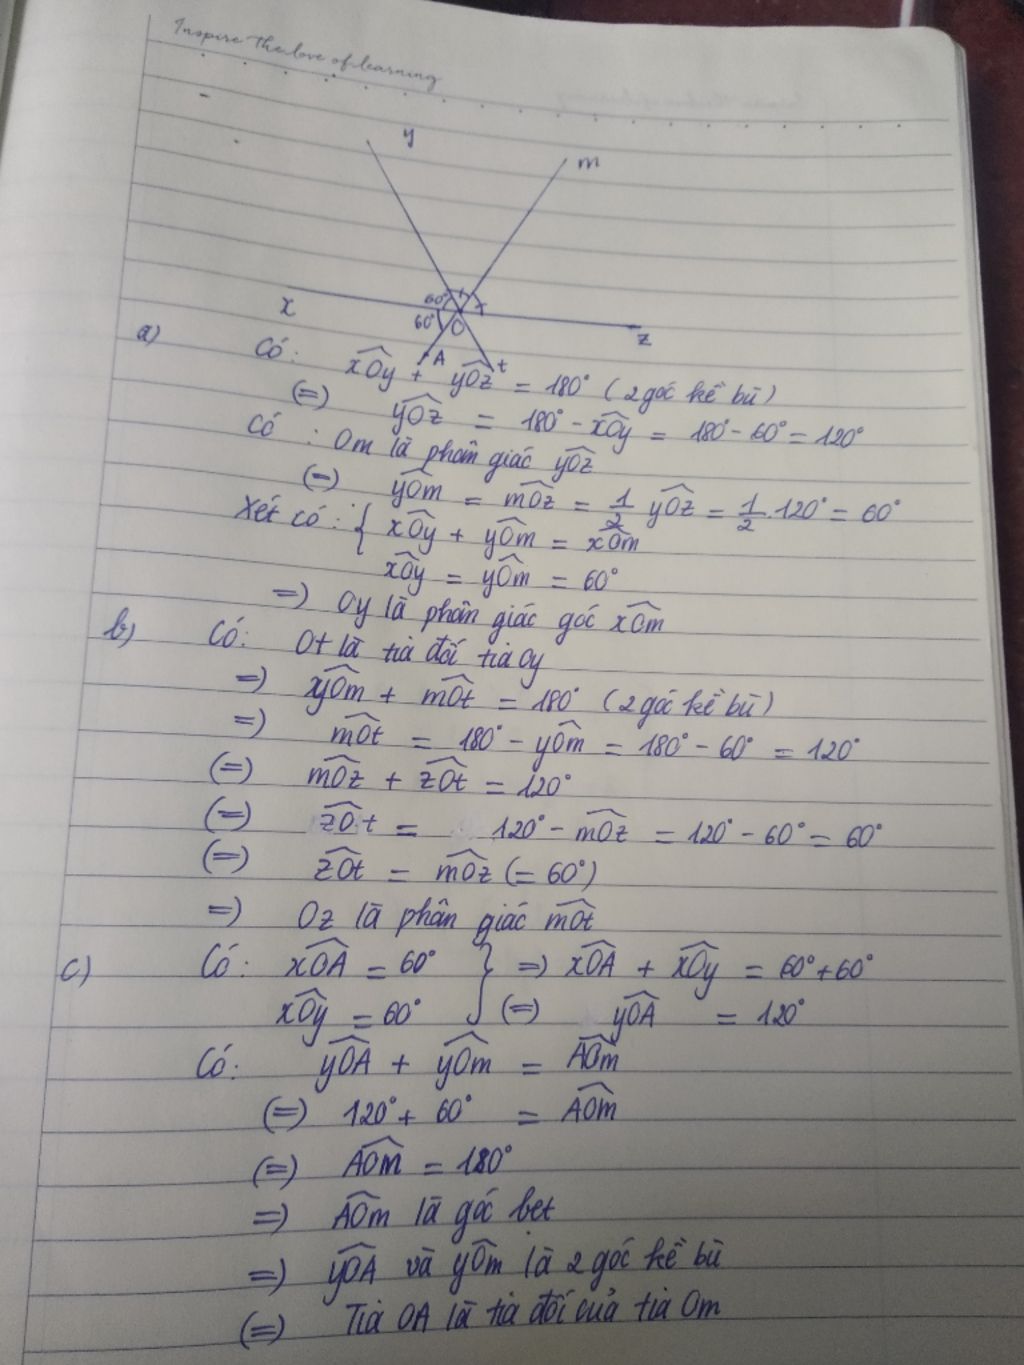 Inspire the love of learning
y
m
x
60°
60°
O
z
A
t
a)
Có: xÔy + yÔz = 180° (2 góc kề bù)
(=) yÔz = 180° - xÔy = 180° - 60° = 120°
Có : Om là phân giác yÔz
(=) yÔm = mÔz = 1/2 yÔz = 1/2 . 120° = 60°
Xét có : { xÔy + yÔm = xÔm
xÔy = yÔm = 60°
=) Oy là phân giác góc xÔm
b) Có: Ot là tia đối tia Oy
=) yÔm + mÔt = 180° (2 góc kề bù)
=) mÔt = 180° - yÔm = 180° - 60° = 120°
(=) mÔz + zÔt = 120°
(=) zÔt = 120° - mÔz = 120° - 60° = 60°
(=) zÔt = mÔz (= 60°)
=) Oz là phân giác mÔt
c) Có: xÔA = 60° } =) xÔA + xÔy = 60° + 60°
xÔy = 60° (=) yÔA = 120°
Có: yÔA + yÔm = AÔm
(=) 120° + 60° = AÔm
(=) AÔm = 180°
=) AÔm là góc bet
=) yÔA và yÔm là 2 góc kề bù
(=) Tia OA là tia đối của tia Om